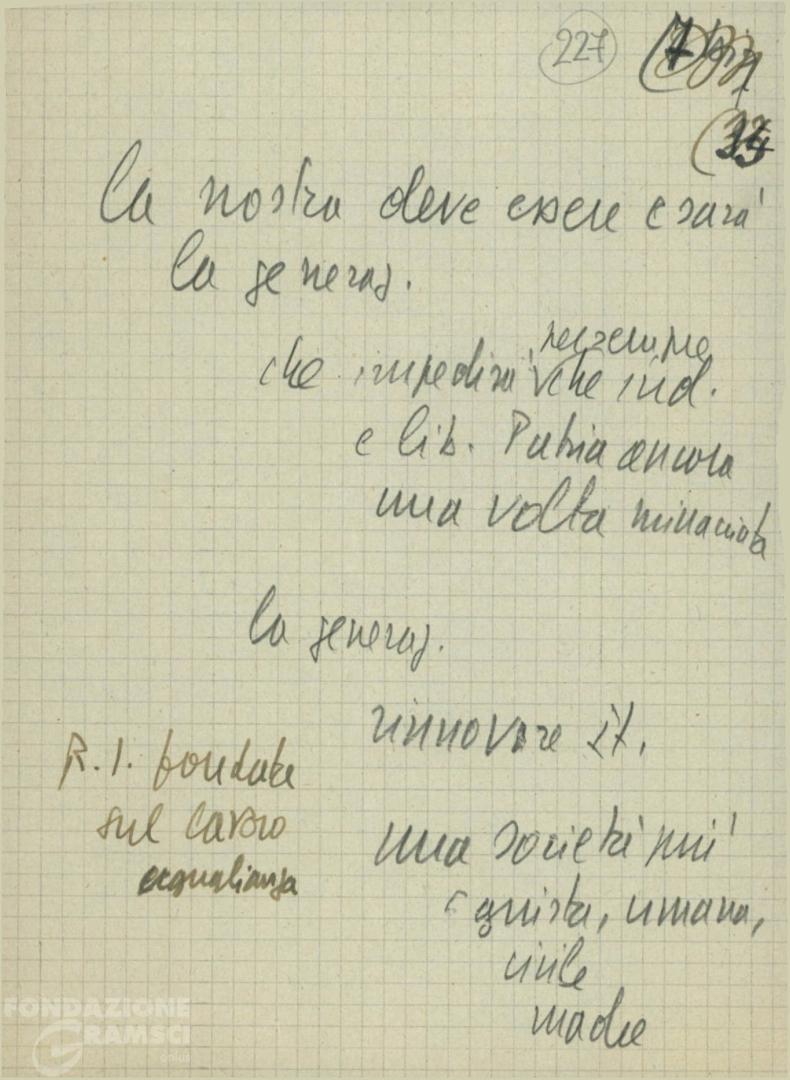 227
La nostra deve essere e sarà
la generaz.
per sempre
che impedirà che ind.
e lib. Patria ancora
una volta minacciata
la generaz.
rinnovare It.
R. I. fondata
sul lavoro
eguaglianza
una società più
giusta, umana,
civile
madre
FONDAZIONE
GRAMSCI
onlus